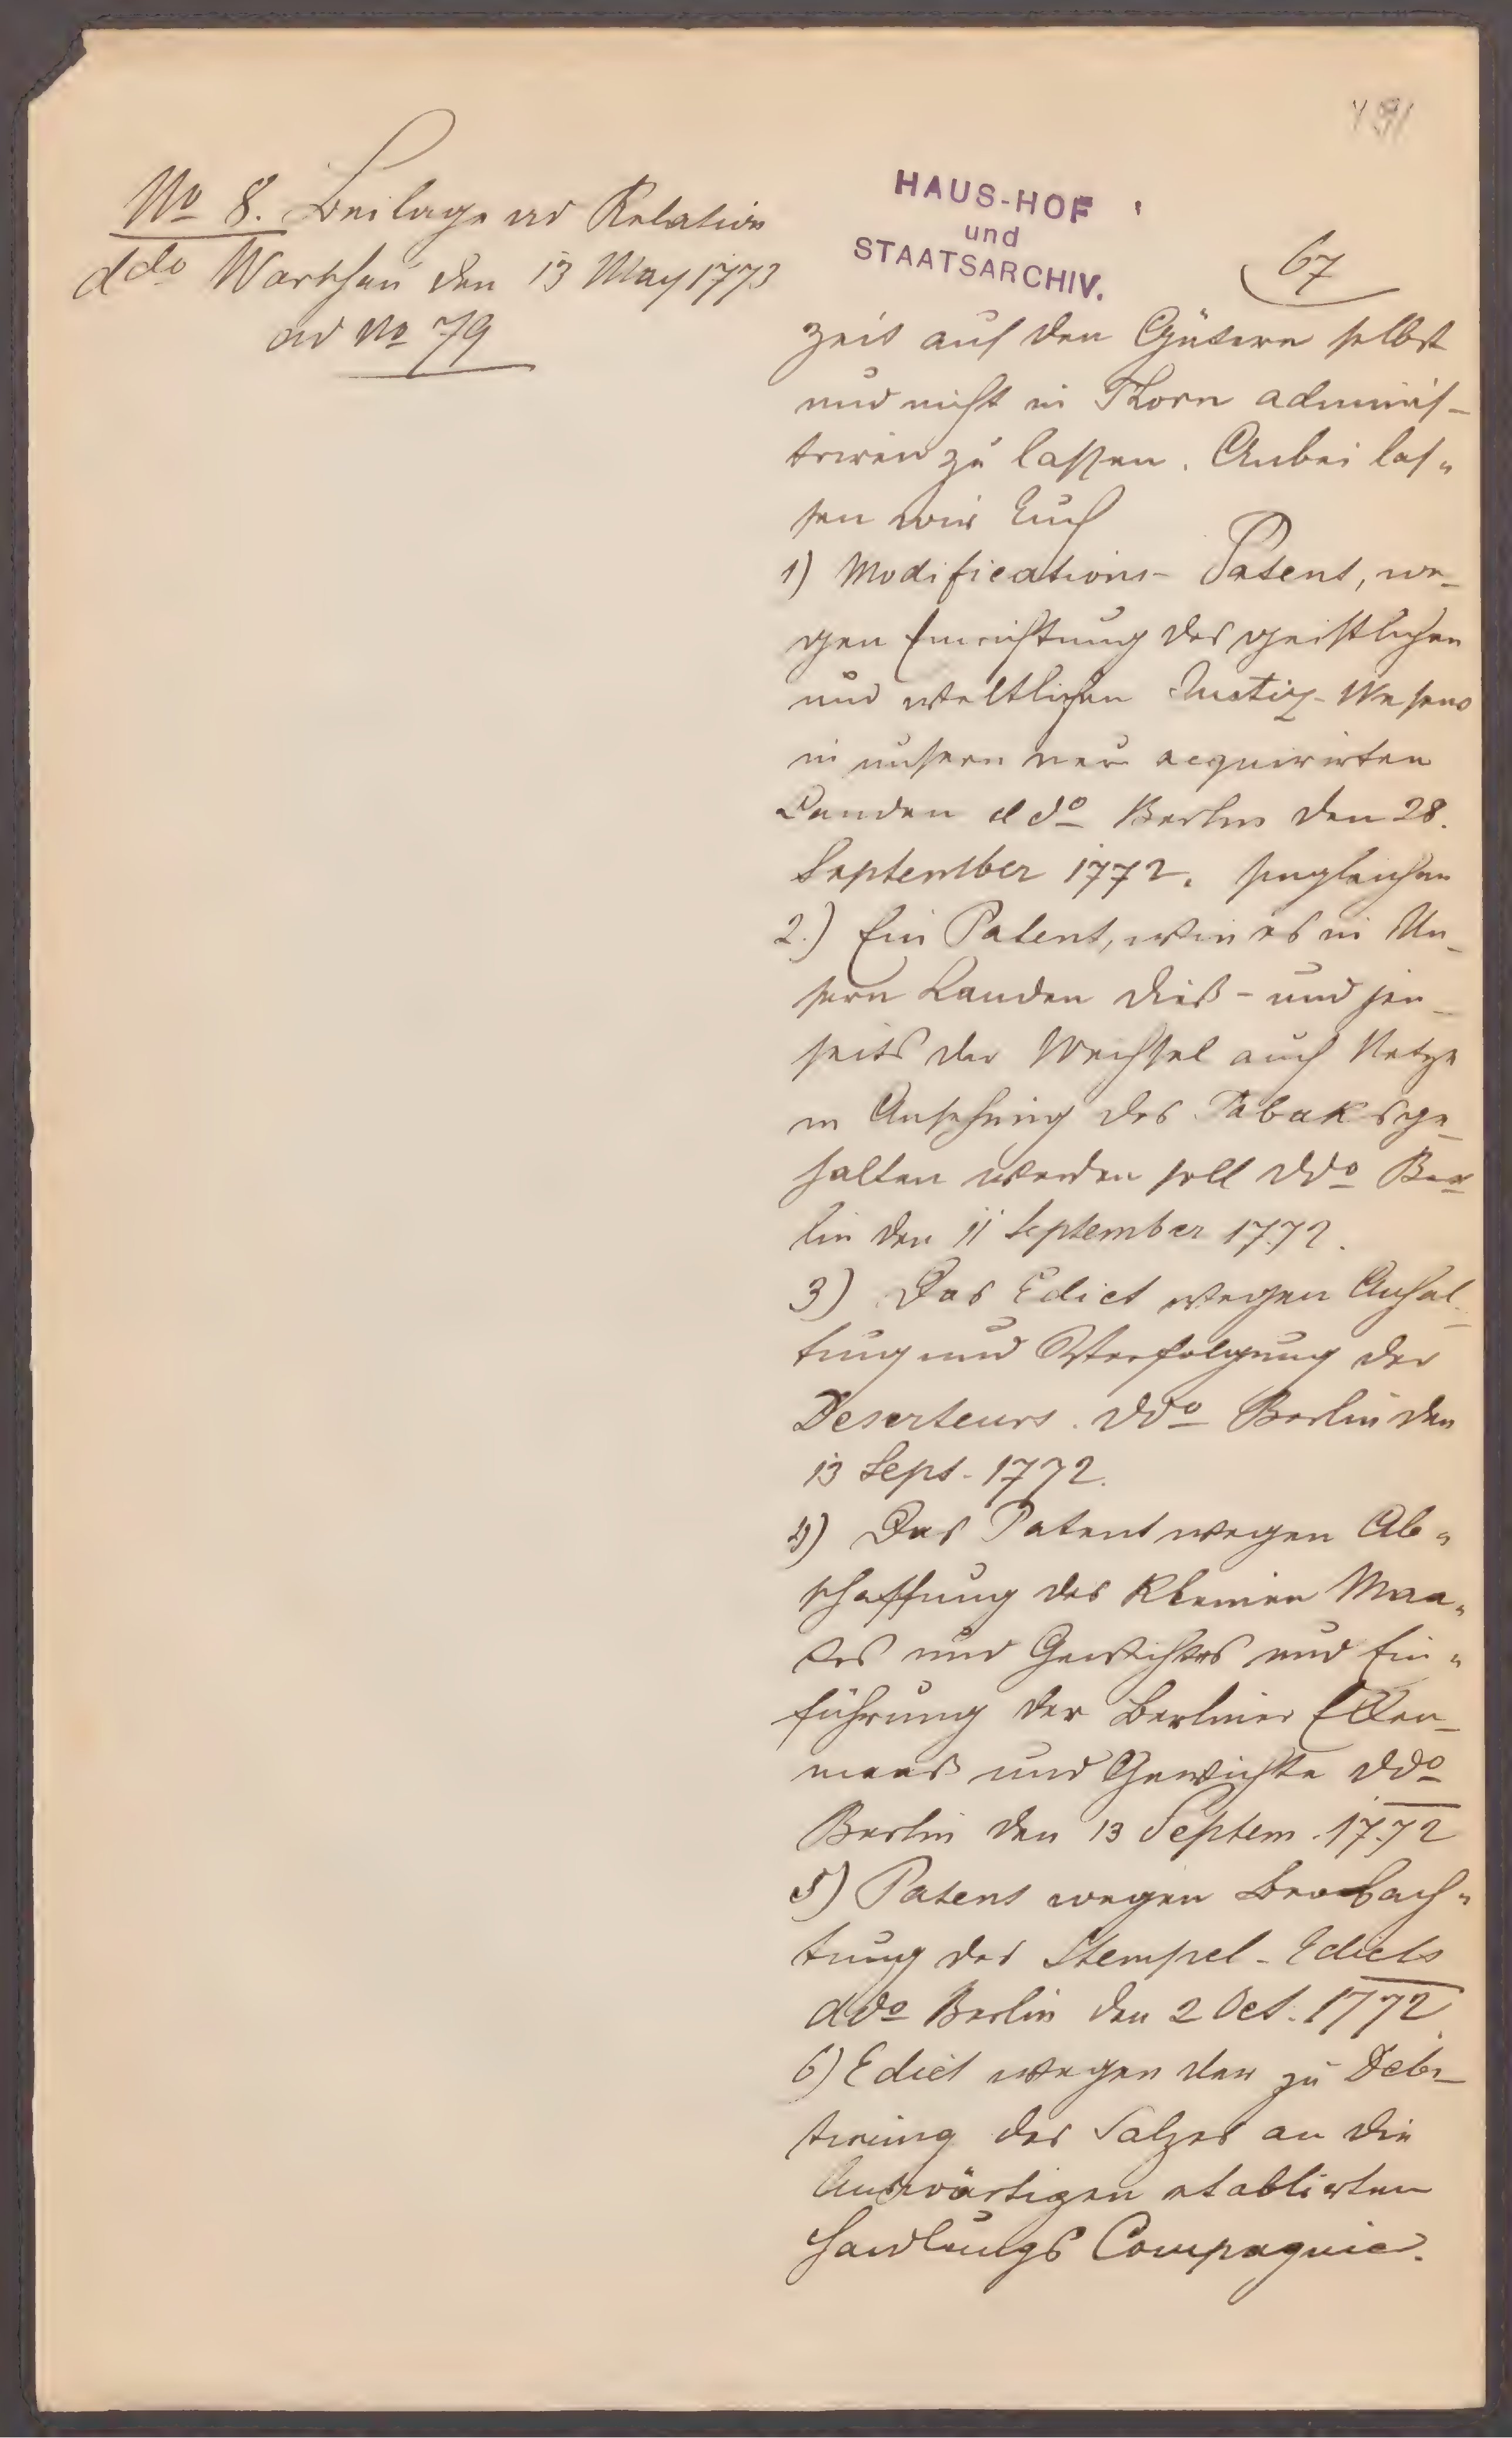 191
No 8. Beilage ad Relation
ddo Warschau den 13 May 1773
ad No 79
HAUS-HOF
und
STAATSARCHIV.
67
zeit auf den Gütern selbst
und nicht in Thorn adminis-
triren zu lassen. Anbei las-
sen wir Euch
1) Modifications-Patent, we-
gen Einrichtung des geistlichen
und weltlichen Justiz-Wesens
in unsern neu acquirirten
Landen ddo Berlin den 28.
September 1772. hingleichen
2.) Ein Patent, wie es in Un-
sern Landen dieß- und jen-
seits der Weichsel auch Netze
in Ansehung des Tabaks ge-
halten werden soll ddo Ber-
lin den 11 September 1772.
3) Das Edict wegen Anhal-
tung und Verfolgung der
Deserteurs. ddo Berlin den
13 Sept. 1772.
4) Das Patent wegen Ab-
schaffung des kleinen Maa-
ses und Gewichtes und Ein-
führung der Berliner Ellen-
maas und Gewichte ddo
Berlin den 13 Septem. 1772
5) Patent wegen Beobach-
tung des Stempel-Edicts
ddo Berlin den 2 Oct. 1772.
6) Edict wegen der zu Debi-
tirung des Salzes an die
Auswärtigen etablirten
Handlungs Compagnie.